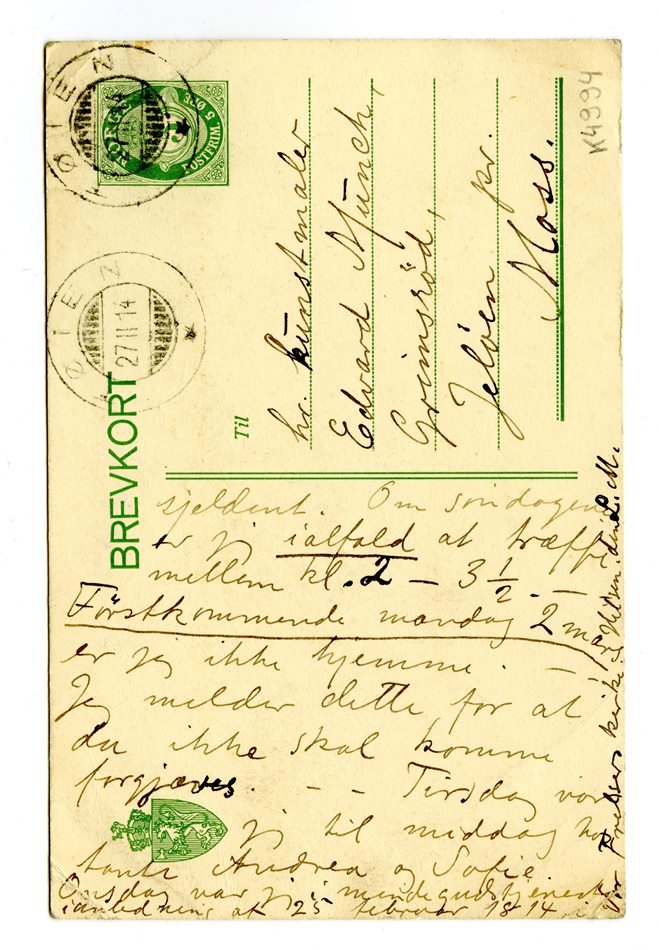 K4994
NORGE
POSTFRIM. 5 ØRE
TØIEN
27 II 14
BREVKORT
Til
hr. kunstmaler
Edvard Munch,
Grimsröd,
Jelöen pr.
Moss.
sjeldent. Om söndagene
er jeg ialfald at træffe
mellem kl. 2 – 3 1/2. –
Förstkommende mandag 2 mars
er jeg ikke hjemme. –
Jeg melder dette for at
du ikke skal komme
forgjæves. – – Tirsdag var
jeg til middag hos
tante Andrea og Sofie.
Onsdag var jeg i mindegudstjeneste
i anledning af 25 februar 1814 i
Vor Frelsers kirke. Hilsen. din L. M.